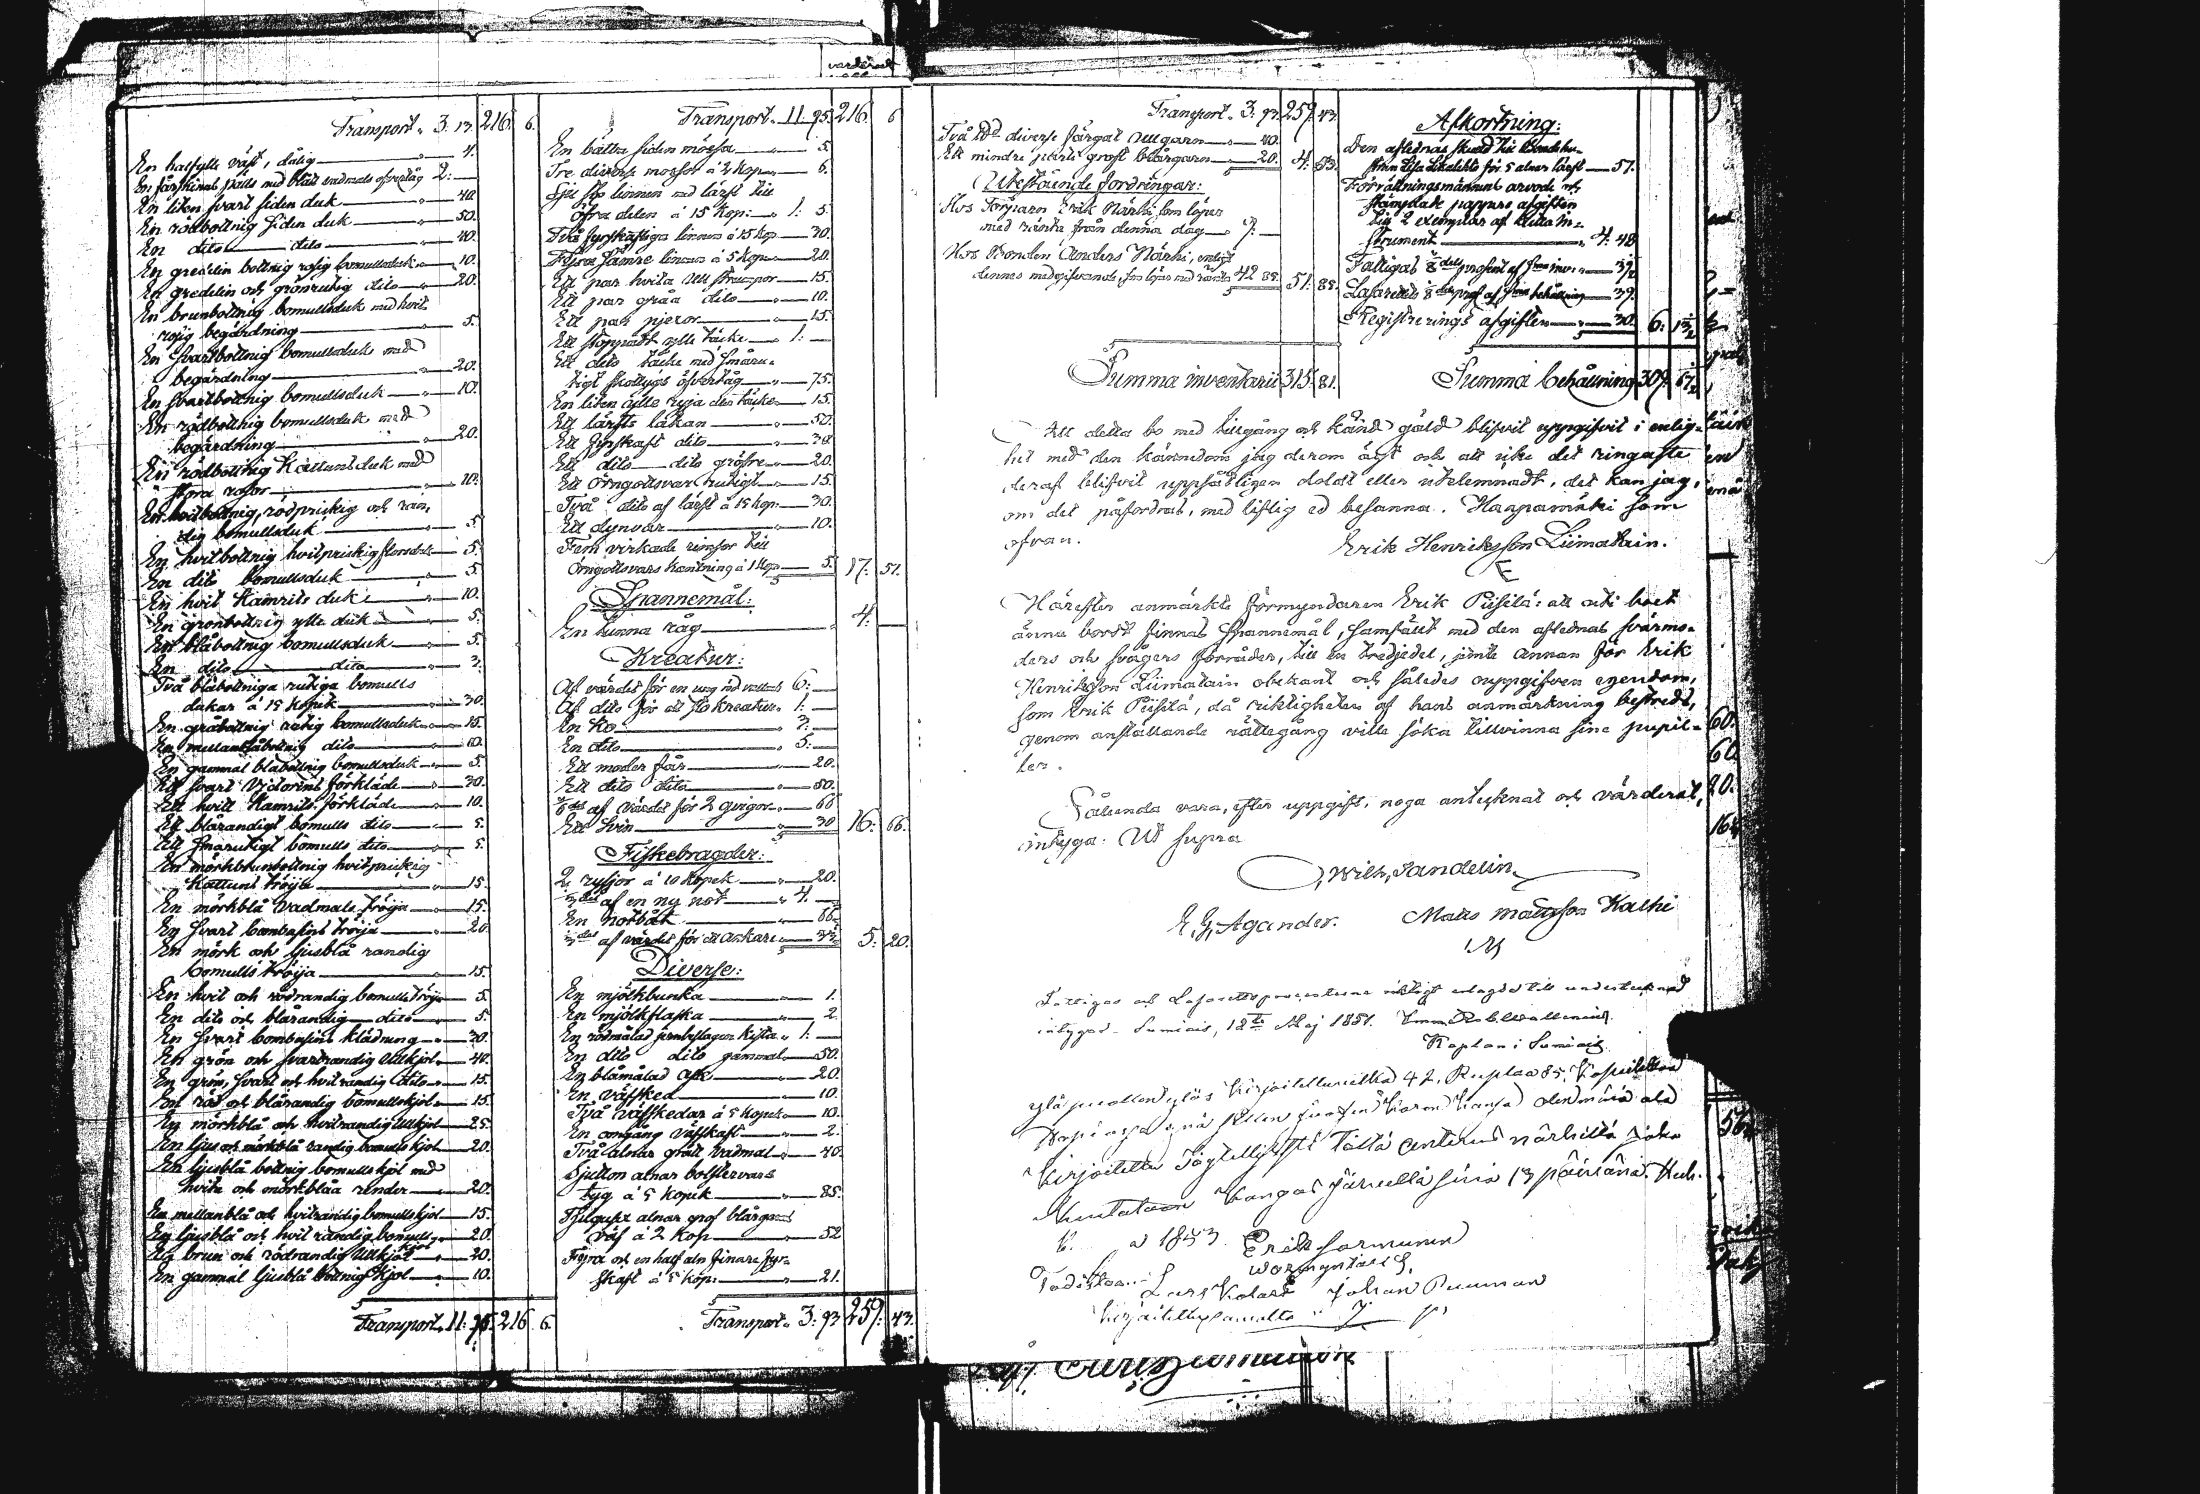 värderat
Transport " 3. 13. 216. 6.
En halfylle väst, dålig " 4.
En fårskinns pälls med blått vadmals öfverdrag 2: —
En liten svart siden duk " 40.
En rödbottnig siden duk " 50.
En dito dito " 40.
En gredelin bottnig rosig bomullsduk " 10.
En gredelin och grönrutig dito " 20.
En brunbottnig bomullsduk med hvit
rosig begärdning " 5.
En svartbottnig bomullsduk med
begärdning " 20.
En svartbottnig bomullsduk " 10.
En rödbottnig bomullsduk med
begärdning 20.
En rödbottnig Kattuns duk med
stora rosor " 10.
En hvitbottnig, rödprickig och ran,
dig bomullsduk " 5.
En hvitbottnig hvitprickig florsduk " 5.
En dito bomullsduk " 5.
En hvit Kamrits duk " 10.
En grönbottnig ylle duk " 5.
En blåbottnig bomullsduk " 5.
En dito dito " 3.
Två blåbottniga rutiga bomulls
dukar à 15 Kopek " 30.
En gråbottnig rutig bomullsduk " 15.
En mellanblåbottnig dito " 10.
En gammal blåbottnig bomullsduk " 5.
Ett svart Victorins förkläde " 30.
Ett hvitt Kamrits förkläde " 10.
Ett blårandigt bomulls dito " 5.
Ett smårutigt bomulls dito " 5.
En mörkbrunbottnig hvitprickig
Kattuns tröija " 15.
En mörkblå vadmals tröja " 15.
En svart bombasins tröija " 20.
En mörk och ljusblå randig
bomulls tröija 15.
En hvit och rödrandig bomulls tröija 5.
En dito och blårandig dito 5.
En svart bombasins klädning " 30.
En grön och svartrandig Ullkjol " 40.
En grön, svart och hvit randig dito " 15.
En röd och blårandig bomullskjol " 15.
En mörkblå och hvitrandig Ullkjol " 25.
En ljus och mörkblå randig bomulls kjol 20.
En ljusblå bottnig bomulls kjol med
hvita och mörkblåa ränder " 20.
En mellanblå och hvitrandig bomulls kjol 15.
En ljusblå och hvit randig bomulls " 20.
En brun och rödrandig Ullkjol " 20.
En gammal ljusblå bottnig kjol " 10.
Transport " 11: 95. 216. 6.
Transport " 11. 95. 216. 6
En bättre siden mössa " 5.
Tre diverse mössor à 2 Kop " 6.
Sju st. linnen med lärft till
öfra delen à 15 Kop: " 1: 5.
Två fyrskaftiga linnen à 15 Kop 30.
Fyra sämre linnen à 5 Kop " 20.
Ett par hvita Ull strumpor 15.
Ett par gråa dito 10.
Ett par pjexor 15.
Ett stoppadt ylle täcke " 1: —
Ett dito täcke med småru-
tigt skottygs öfverdrag " 75.
En liten ylle ryja des täcke 15.
Ett lärfts lakan 50.
Ett fyrskaft dito 30.
Ett dito dito gröfre 20.
Ett Örngottsvar rutigt 15.
Två dito af lärft à 15 Kop: 30.
Ett dynvar 10.
Fem virkade rimsor till
Örngottsvars kantning à 1 Kop 5. 17: 51.
Spannemål:
En tunna råg " 4. —
Kreatur:
Af värdet för en ung röd vallack 6: —
Af dito för ett sto kreatur " 1: —
En Ko " 3: —
En dito " 3: —
Ett moder får " 20.
Ett dito dito " 50.
af värdet för 2 qvigor " 66
Ett Svin " 30 16: 66.
Fiskebragder:
2 rysjor à 10 Kopek " 20.
af en ny not " 4. —
En notbåt " 66
af värdet för ett ankare " 33 5: 20.
Diverse:
En mjölkbunka " 1.
En mjölkflaska " 2.
En rödmålad jernbeslagen kista " 1: —
En dito dito gammal 50.
En blåmålad ask " 20.
En väfsked " 10.
Två väfskedar à 5 Kopek " 10.
En omgång väfskaft " 2.
Två alnar grått vadmal " 40.
Sjutton alnar bolstervars
tyg à 5 Kopek 85.
Tjugusex alnar grof blårgarns
väf à 2 Kop 52
Fyra och en half aln finare fyr-
skaft à 5 Kop: 21.
Transport " 3: 93 259: 43.
Transport " 3: 93. 259. 43.
Två diverse färgat Ullgarn " 40.
Ett mindre parti groft blårgarn " 20. 4. 53.
Utestående fordringar:
Hos Torparen Erik Närhi, som löper
med ränta från denna dag " 9. —
Hos Bonden Anders Närhi, enligt
dennes medgifvande, som löper med ränta 42 85. 51. 85.
Summa inventarii 315. 81.
Afkortning:
Den aflednas skuld till Bondehu-
strun Lisa för 5 alnar lärft 51.
Förrättningsmännens arvode och
stämplade pappers afgiften
till 2 exemplar af detta in-
strument " 4. 48
Fattigas 1/8 dels procent af inv: 39.
Lasaretts 1/8 dels proc. af behållning 39.
Registrerings afgiften " 30. 6: 13½
Summa behållning 309. 67½
Att detta bo med tillgång och känd gäld blifvit uppgifvit i enlig-
het med den kännedom jag derom ägt och att icke det ringaste
deraf blifvit uppsåtligen doldt eller utelemnadt, det kan jag,
om det påfordras, med liflig ed besanna. Haapamäki som
ofvan. Erik Henriksson Liimatain.
Härefter anmärkte förmyndaren Erik Piisilä: att uti boet
ännu borde finnas Spannemål, samfält med den aflednas svärmo-
ders och svågers förråder, till en tredjedel, jemte annan för Erik
Henriksson Liimatain obekant och således ouppgifven egendom,
som Erik Piisilä, då riktigheten af hans anmärkning bestreds,
genom anställande rättegång ville söka tillvinna sine pupil-
ler.
Sålunda vara, efter uppgift, noga antecknat och värderat,
intyga: Ut supra
Wilh. Sandelin.
E. G. Agander. Mats Mattsson Kalhi
Fattigas och Lasarettsprocenterne riktigt erlagde till undertecknad
intygar. Sumiais, 12te Maj 1851.
Kaplan i Sumiais.
42, Ruplaa 85, Kopeikkaa
Kangas järvellä sinä 13 päivänä.
1853. Erik Sormunen
Todistaa: Lars Johan Puuman